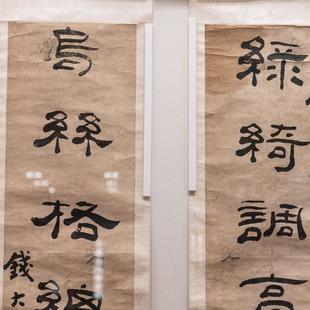 綠綺調高
烏絲格
錢大